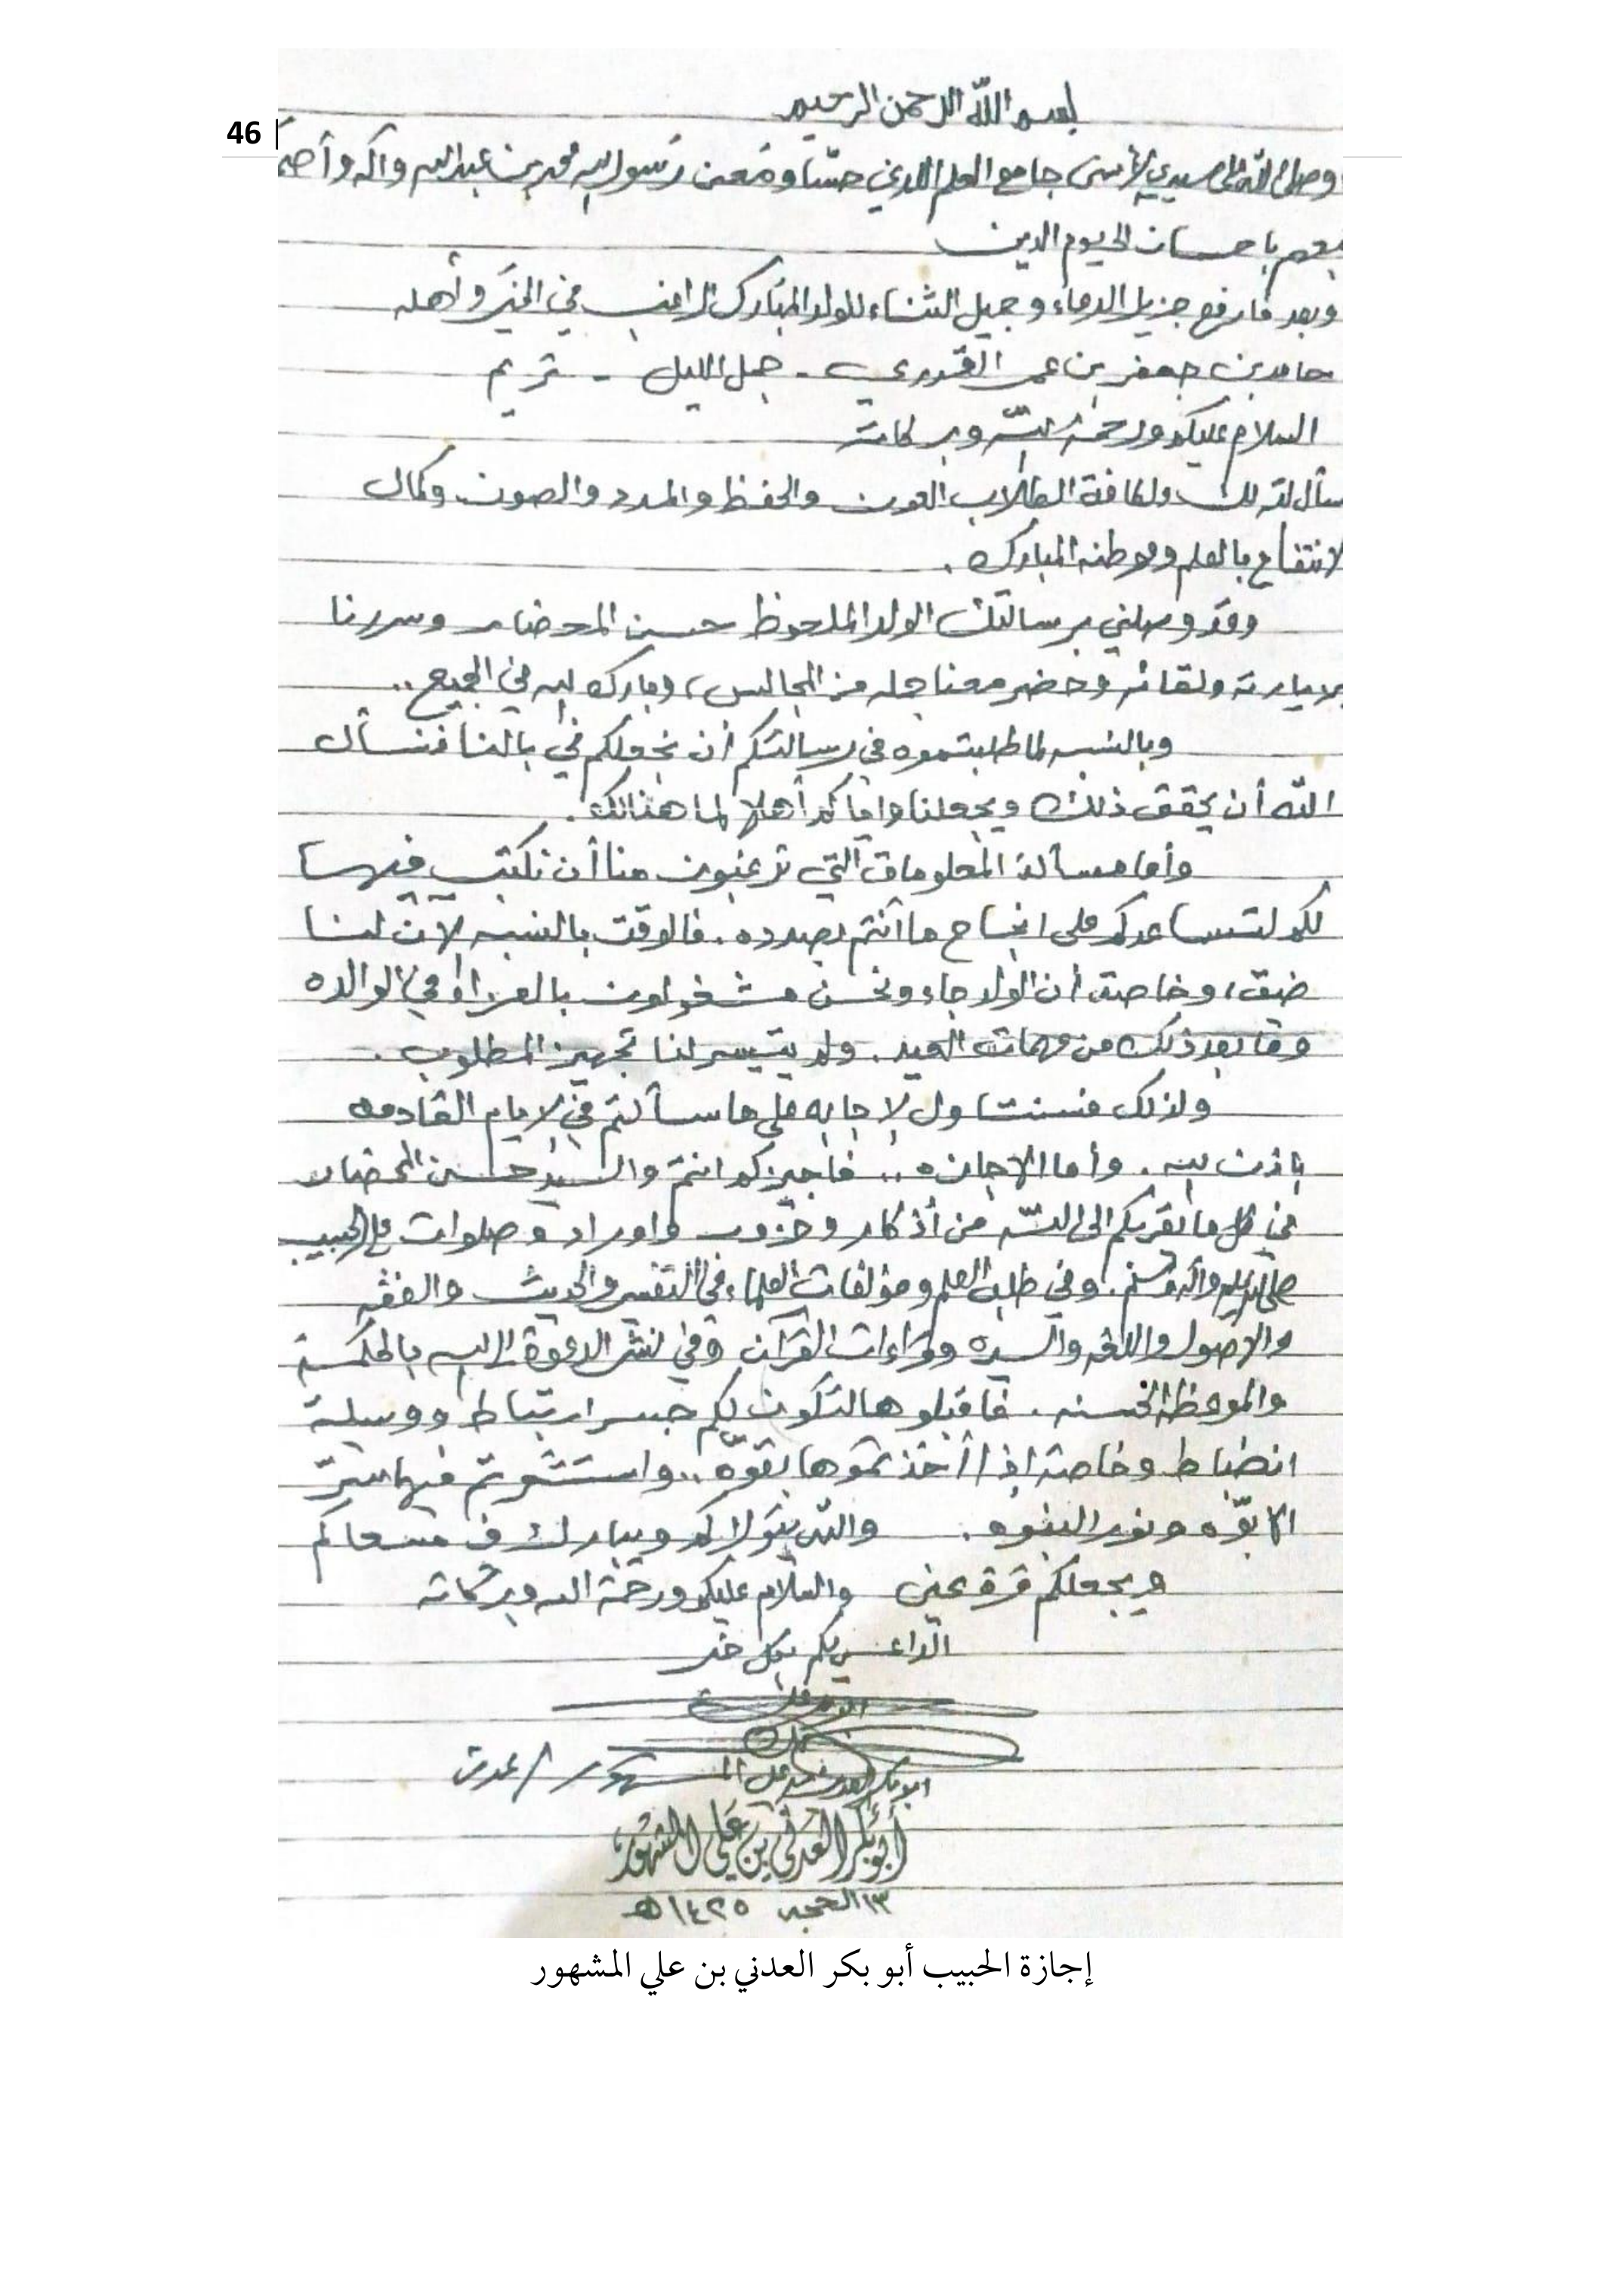 46
بسم الله الرحمن الرحيم
وصلى الله على سيدي الأسنى جامع العلم اللدني حسّا ومعنى رسول الله محمد بن عبدالله وآله وأصحا
بعهم باحسان الى يوم الدين
وبعد فارفع جزيل الدعاء وجميل الثناء للولد المبارك الراغب في الخير وأهله
حامد بن جعفر بن عمر القدري - جمل الليل - تريم
السلام عليكم ورحمة الله وبركاته
سأل الله لك ولكافة الطلاب العون والحفظ والمدد والصون وكمال
لانتفاع بالعلم وموطنه المبارك .
وقد وصلني برسالتك الولد الملحوظ حسين المحضار وسررنا
بزيارته ولقائه وحضر معنا جمله من المجالس، وبارك الله في الجميع ..
وبالنسبه لما طلبتموه في رسالتكم أن نجعلكم في بالنا فنسأل
الله أن يحقق ذلك ويجعلنا واياكم أهلا لما هنالك .
وأما مسألة المعلومات التي ترغبون منا أن نكتب فيها
لكم لتساعدكم على انجاح ما أنتم بصدده . فالوقت بالنسبه لان لنا
ضيق، وخاصة أن الولد جاء ونحن مشغولون بالعزاء في الوالده
وما بعد ذلك من مهمات العيد . ولم يتيسر لنا تجهيز المطلوب .
ولذلك فسنتناول الاجابه على ما سألتم في الايام القادمه
باذن الله . وأما الاجازه .. فأجيزكم انتم والسيد حسين المحضار
في كل ما يقربكم الى الله من أذكار وحزوب واوراد وصلوات على الحبيب
صلى الله عليه وآله وسلم . وفي طلب العلم ومؤلفات العلماء في التفسير والحديث والفقه
والاصول واللغه والسيره وقراءات القرآن وفي نشر الدعوة الى الله بالحكمة
والموعظة الحسنه . فاقبلوها لتكون لكم جسر ارتباط ووسيلة
انضباط وخاصة اذا أخذتموها بقوّه .. واستشعرتم فيها سرّ
الابوّه ونور النبوه . والله يتولاكم ويبارك في مسعاكم
ويجعلكم قرة عين والسلام عليكم ورحمة الله وبركاته
الداعي لكم بكل خير
ابوبكر العدني بن علي المشهور / عدن
أبوبكر العدني بن علي المشهور
١٣ الحجه ١٤٢٥هـ
إجازة الحبيب أبو بكر العدني بن علي المشهور